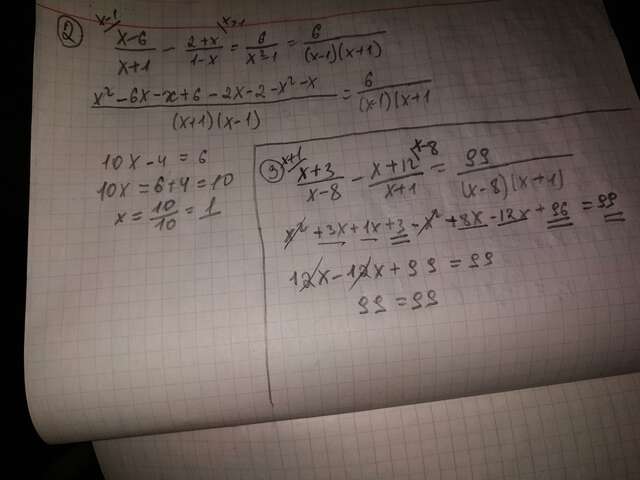 ② x-1 x+1
x-6/x+1 - 2+x/1-x = 6/x²-1 = 6/(x-1)(x+1)
x²-6x-x+6-2x-2-x²-x/(x+1)(x-1) = 6/(x-1)(x+1
10x-4=6
10x=6+4=10
x=10/10=1
③ x+1 x-8
x+3/x-8 - x+12/x+1 = 99/(x-8)(x+1)
x²+3x+1x+3-x²+8x-12x+96=99
12x-12x+99=99
99=99